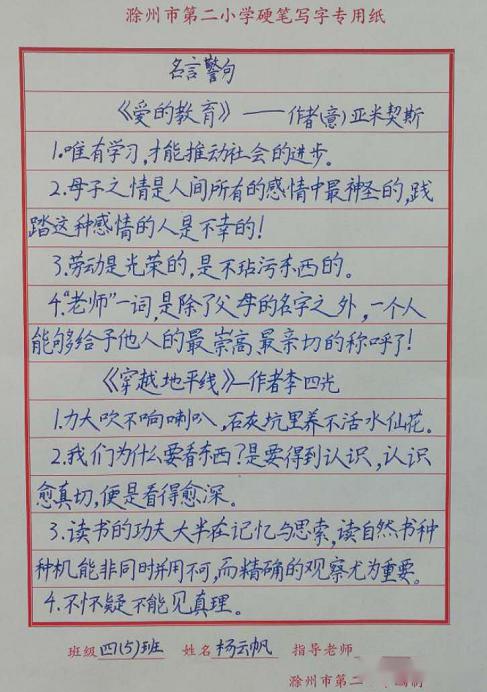 滁州市第二小学硬笔写字专用纸
名言警句
《爱的教育》——作者(意)亚米契斯
1.唯有学习,才能推动社会的进步。
2.母子之情是人间所有的感情中最神圣的,践
踏这种感情的人是不幸的!
3.劳动是光荣的,是不玷污东西的。
4."老师"一词,是除了父母的名字之外,一个人
能够给予他人的最崇高最亲切的称呼了!
《穿越地平线》—作者李四光
1.力大吹不响喇叭,石灰坑里养不活水仙花。
2.我们为什么要看东西?是要得到认识,认识
愈真切,便是看得愈深。
3.读书的功夫大半在记忆与思索,读自然书种
种机能非同时并用不可,而精确的观察尤为重要。
4.不怀疑不能见真理。
班级 四(5)班 姓名 杨云帆 指导老师
滁州市第二